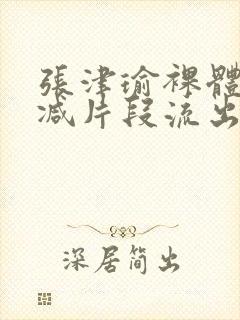 張津瑜裸體
减片段流出
深居简出